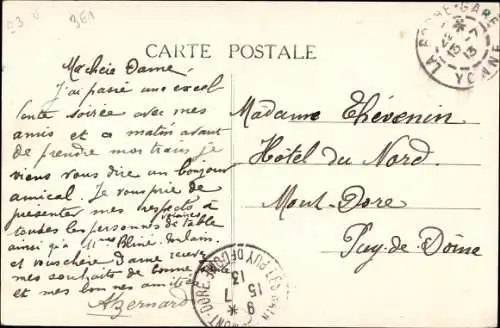 23 V
3E1
CARTE POSTALE
Ma chère Dame
J'ai passé une excel
lente soirée avec mes
amis et ce matin avant
de prendre mon train je
viens vous dire un bonjour
amical. Je vous prie de
présenter mes respects à
toutes les personnes de table
voisines
ainsi qu'à Mme
et vous chère Dame recevez
mes souhaits de bonne
et mes bons
A Bernard
Madame Thévenin
Hôtel du Nord
Mont-Dore
Puy-de-Dôme
LA ROCHE-GARE
YONNE
15-7
13
MONT-DORE-LES-BAINS
PUY-DE-DOME
9 *
15
7
13